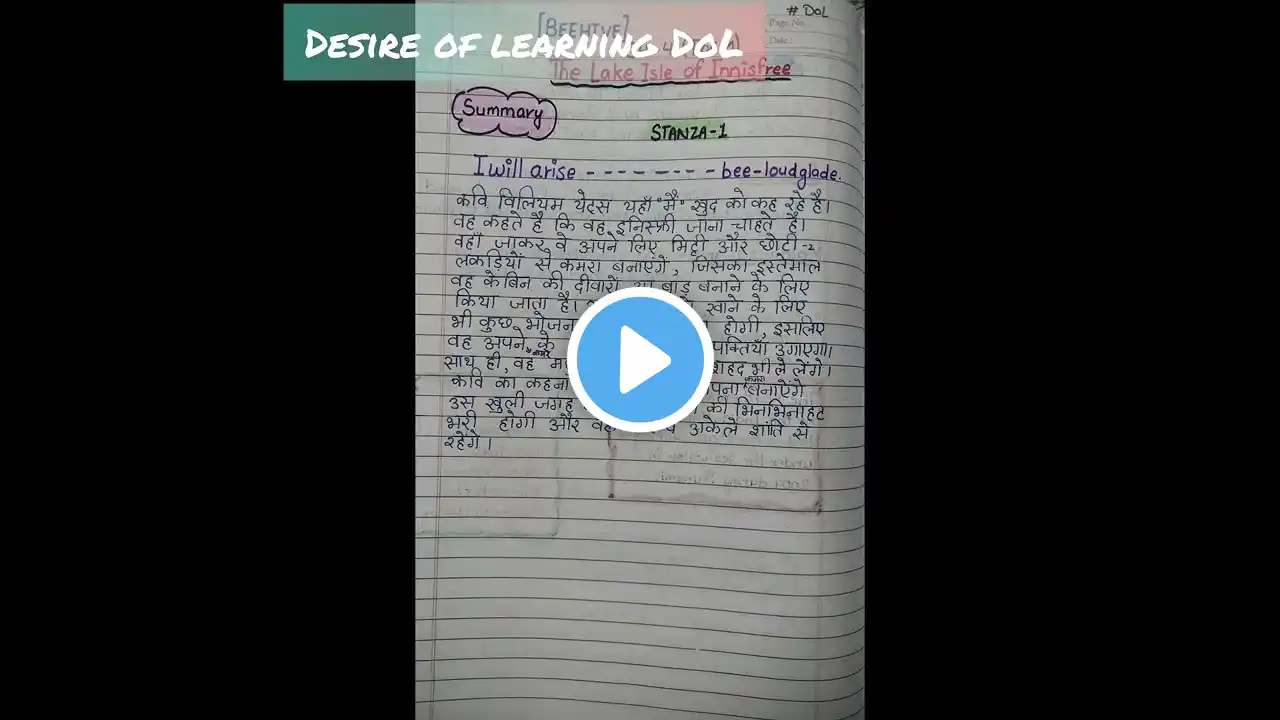 # DOL
Page No.
Date:
DESIRE OF LEARNING DOL
[BEEHIVE]
The Lake Isle of Innisfree
Summary
STANZA-1
I will arise - - - - - - - - bee-loud glade.
कवि विलियम येट्स यहाँ "मैं" खुद को कह रहे है।
वह कहते है कि वह इनिस्फ्री जाना चाहते है।
वहाँ जाकर वे अपने लिए मिट्टी और छोटी-२
लकड़ियों से कमरा बनाएंगे, जिसका इस्तेमाल
वह केबिन की दीवारों या बाड़ बनाने के लिए
किया जाता है। खाने के लिए
भी कुछ भोजन होगी, इसलिए
वह अपने के उगाएगा।
कमरे
साथ ही, वह शहद भी ले लेंगे।
कवि का कहना बनाऐंगे
कमरा
उस खुली जगह की भिनभिनाहट
भरी होगी और अकेले शांति से
रहेंगे।